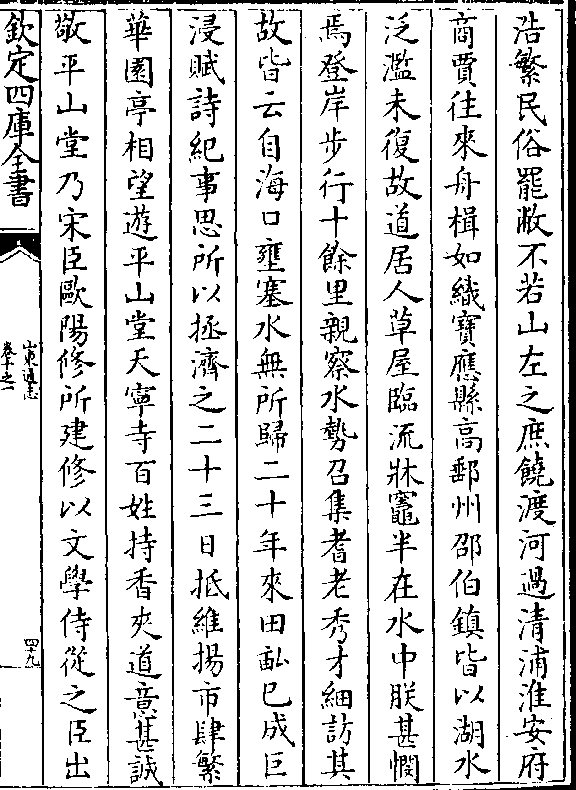 浩繁民俗罷敝不若山左之庶饒渡河過清浦淮安府
商賈往來舟楫如織寶應縣高郵州邵伯鎮皆以湖水
泛濫未復故道居人草屋臨流牀竈半在水中朕甚憫
焉登岸步行十餘里親察水勢召集耆老秀才細訪其
故皆云自海口壅塞水無所歸二十年來田畝已成巨
浸賦詩紀事思所以拯濟之二十三日抵維揚市肆繁
華園亭相望遊平山堂天寧寺百姓持香夾道意甚誠
敬平山堂乃宋臣歐陽修所建修以文學侍從之臣出
欽定四庫全書
山東通志
卷十之一
四十九